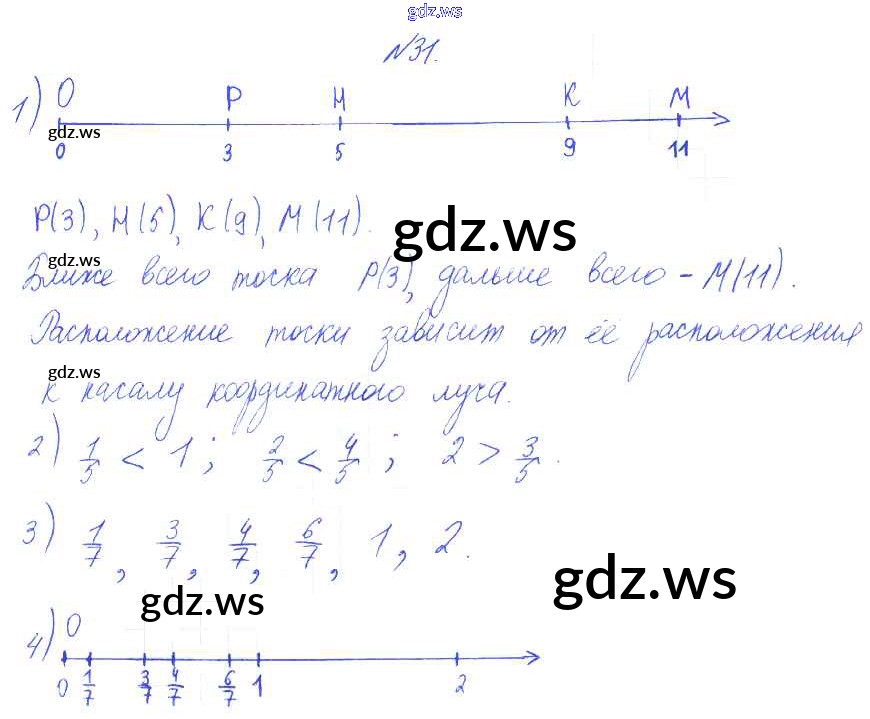 gdz.ws
№31.
1) O P H K M
gdz.ws
0 3 5 9 11
P(3), H(5), K(9), M(11).
gdz.ws
gdz.ws
Ближе всего точка P(3), дальше всего - M(11).
Расположение точки зависит от её расположения
gdz.ws
к началу координатного луча.
2) 1/5 < 1; 2/5 < 4/5; 2 > 3/5.
3) 1/7, 3/7, 4/7, 6/7, 1, 2.
gdz.ws
gdz.ws
4) O
0 1/7 3/7 4/7 6/7 1 2